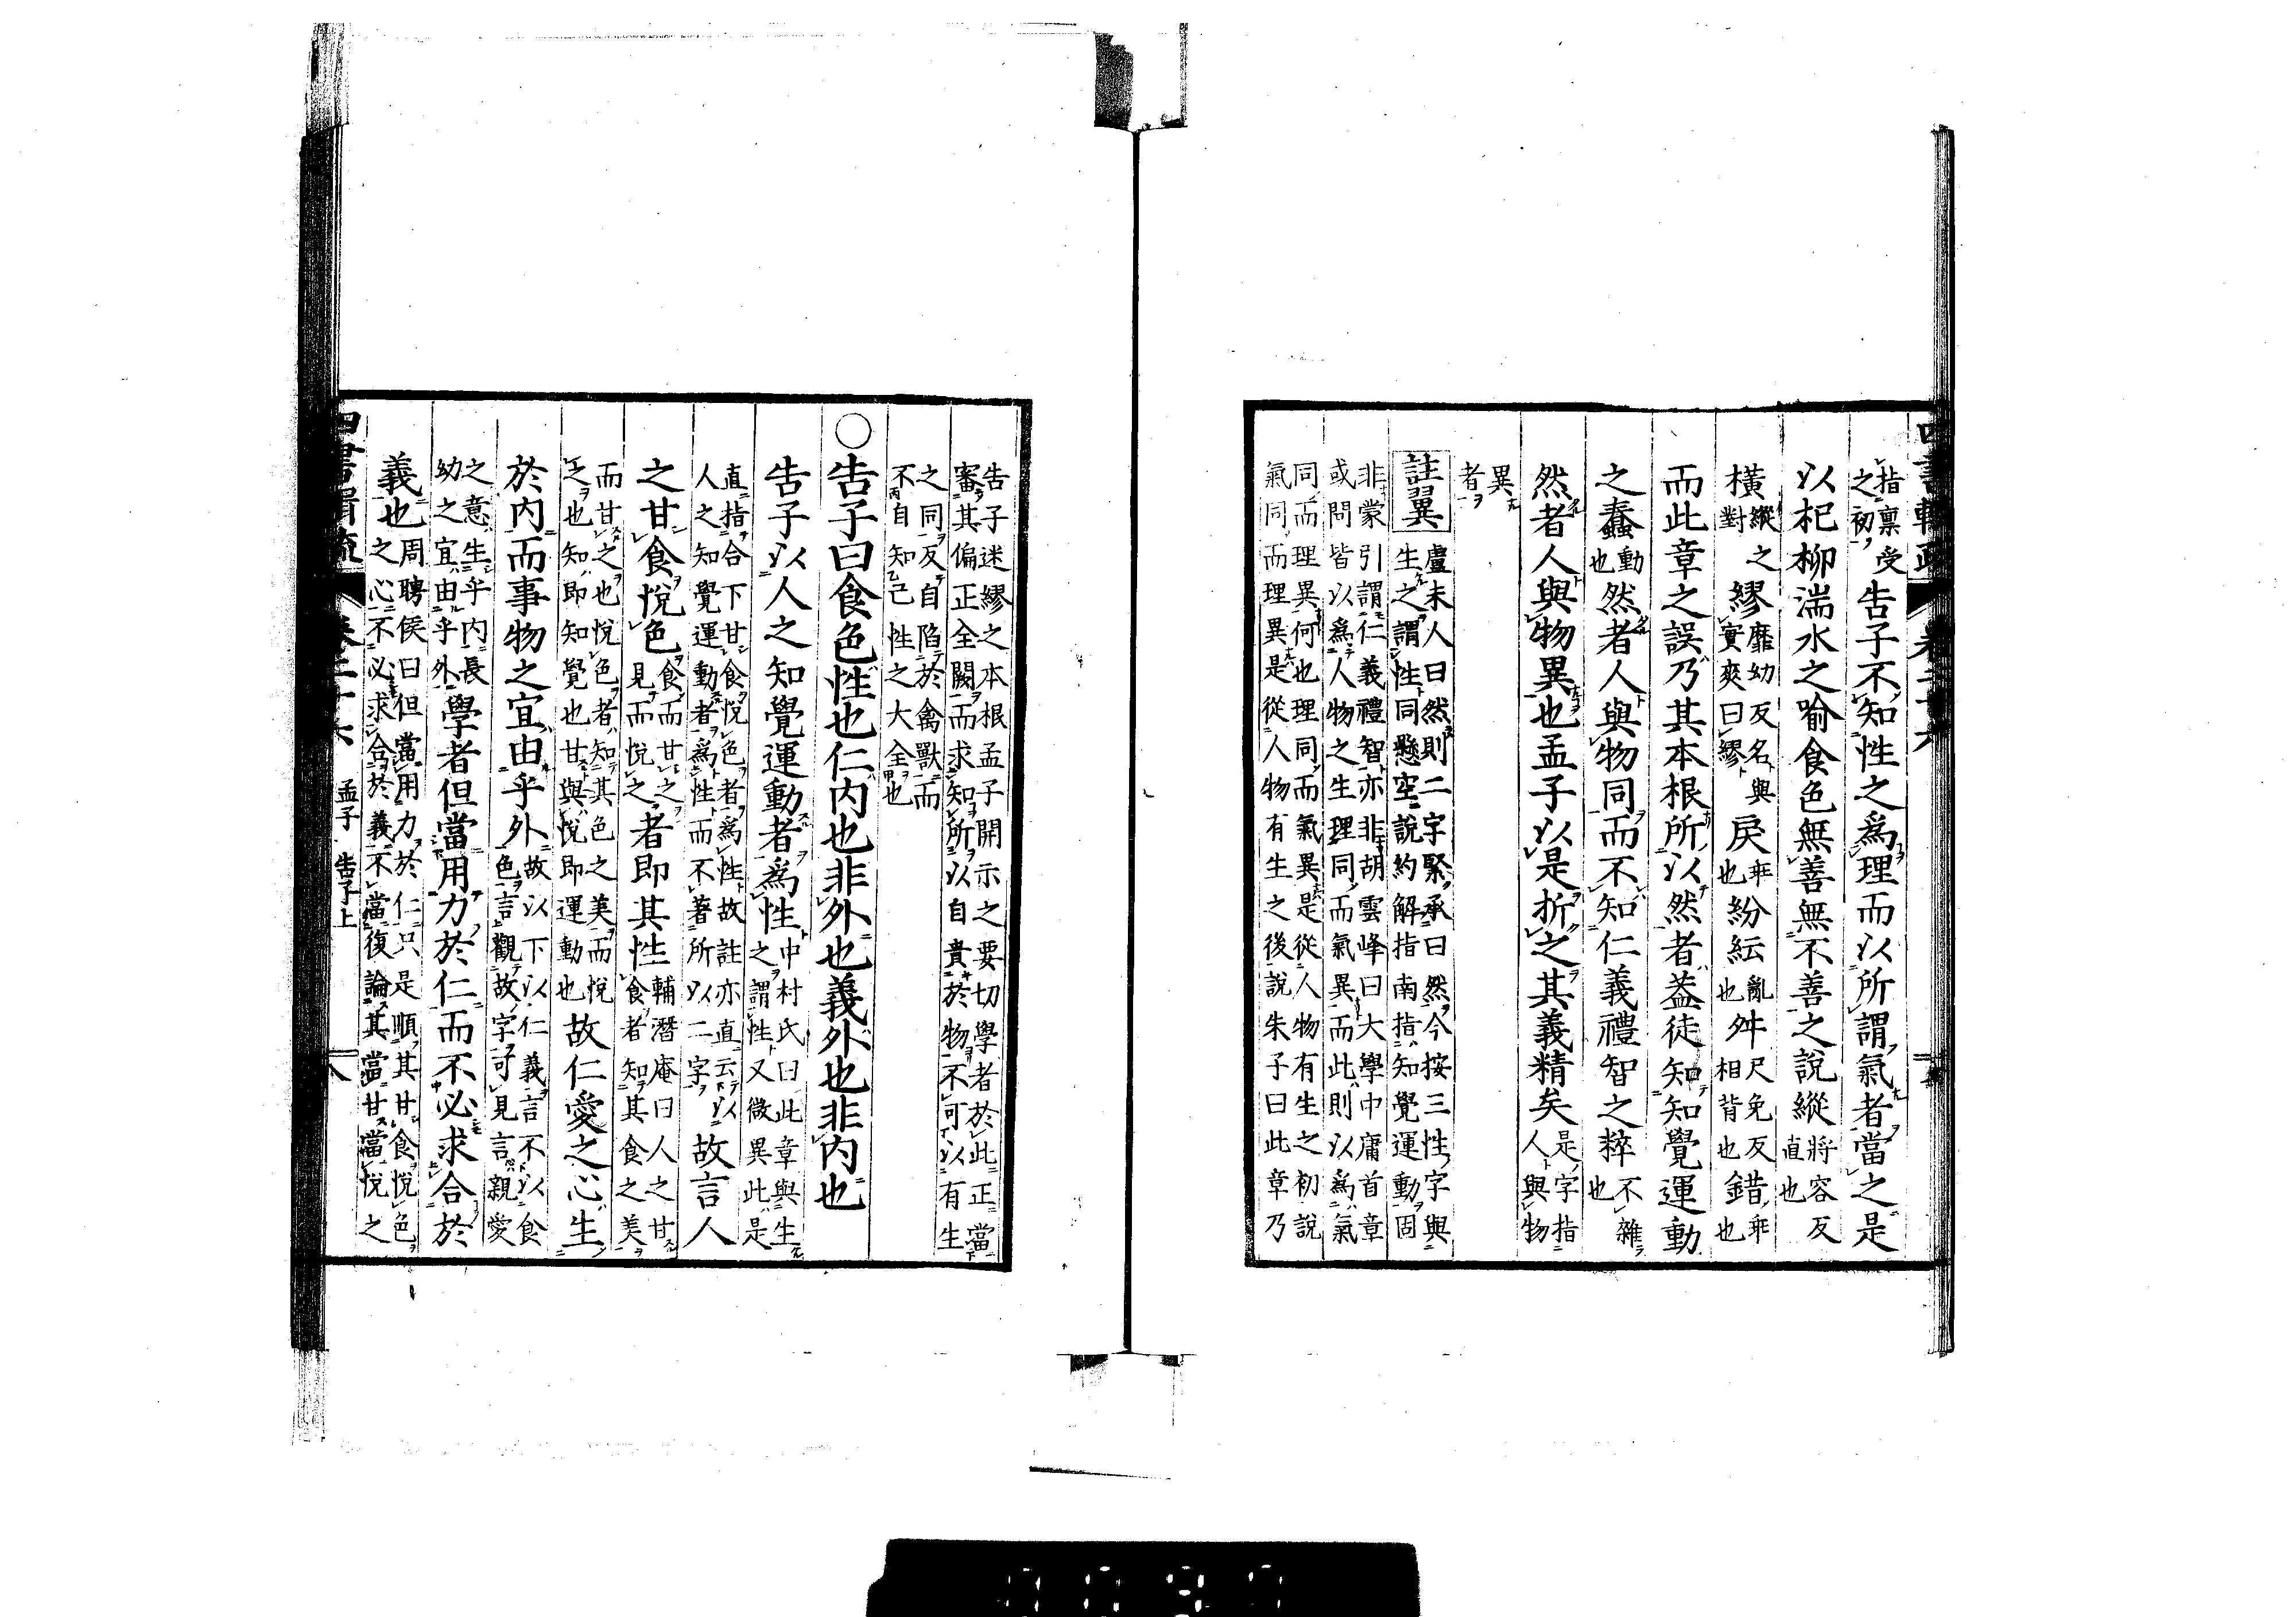 指禀受之初告子不知性之爲理而以所謂氣者當之是
以杞柳湍水之喻食色無善無不善之說縱將容反直也
橫縱之對繆靡幼反名與實爽曰繆戾乖也紛紜亂也舛尺兔反相背也錯乖也
而此章之誤乃其本根所以然者葢徒知知覺運動
之蠢動也然者人與物同而不知仁義禮智之粹不雜也
然者人與物異也孟子以是折之其義精矣是字指人與物
異者
註翼盧未人曰然則二字緊承曰然今按三性字與
生之謂性同懸空說約解指南指知覺運動固
非蒙引謂仁義禮智亦非胡雲峰曰大學中庸首章
或問皆以爲人物之生理同而氣異而此則以爲氣
同而理異何也理同而氣異是從人物有生之初說
氣同而理異是從人物有生之後說朱子曰此章乃
告子迷繆之本根孟子開示之要切學者於此正當
審其偏正全闕而求知所以自貴於物不可以有生
之同反自陷於禽獸而
不自知己性之大全也
○告子曰食色性也仁內也非外也義外也非內也
告子以人之知覺運動者爲性中村氏曰此章與生之謂性又微異此是
直指合下甘食悅色者爲性故註亦直云以
人之知覺運動者爲性而不著所以二字故言人
之甘食悅色見食而甘之見色而悅之者即其性輔潛庵曰人之甘食者知其食之美
而甘之也悅色者知其色之美而悅
之也知即知覺也甘與悅即運動也故仁愛之心生
於內而事物之宜由乎外故以下以仁義言不以食色言觀故字可見言親愛
之意生乎內長
幼之宜由乎外學者但當用力於仁而不必求合於
義也周聘侯曰但當用力於仁只是順其甘食悅色
之心不必求合於義不當復論其當甘當悅之
孟子 告子上
八